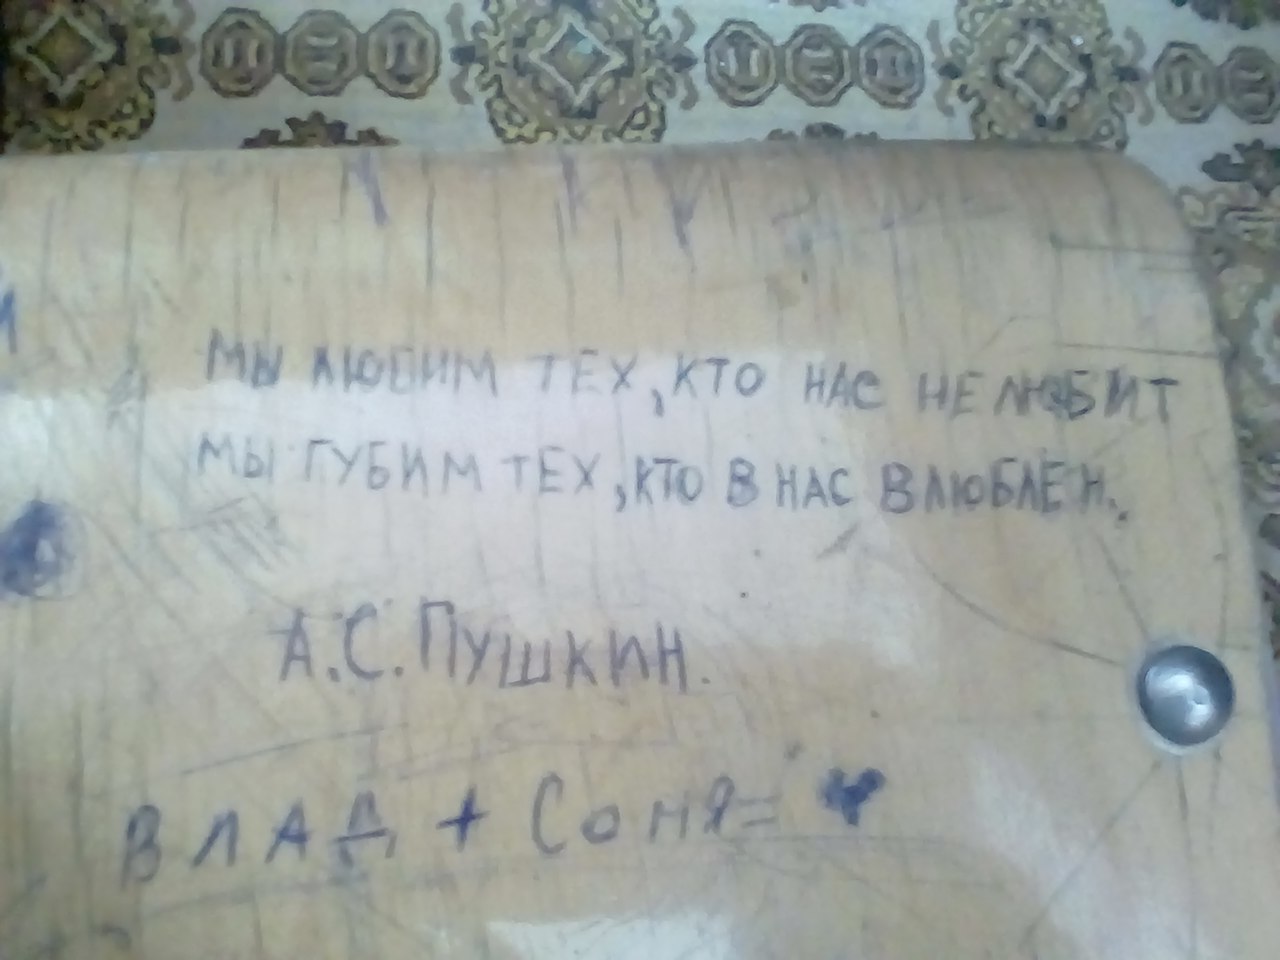 МЫ ЛЮБИМ ТЕХ, КТО НАС НЕ ЛЮБИТ
МЫ ГУБИМ ТЕХ, КТО В НАС ВЛЮБЛЕН.
А.С. ПУШКИН.
ВЛАД + СОНЯ = ♥